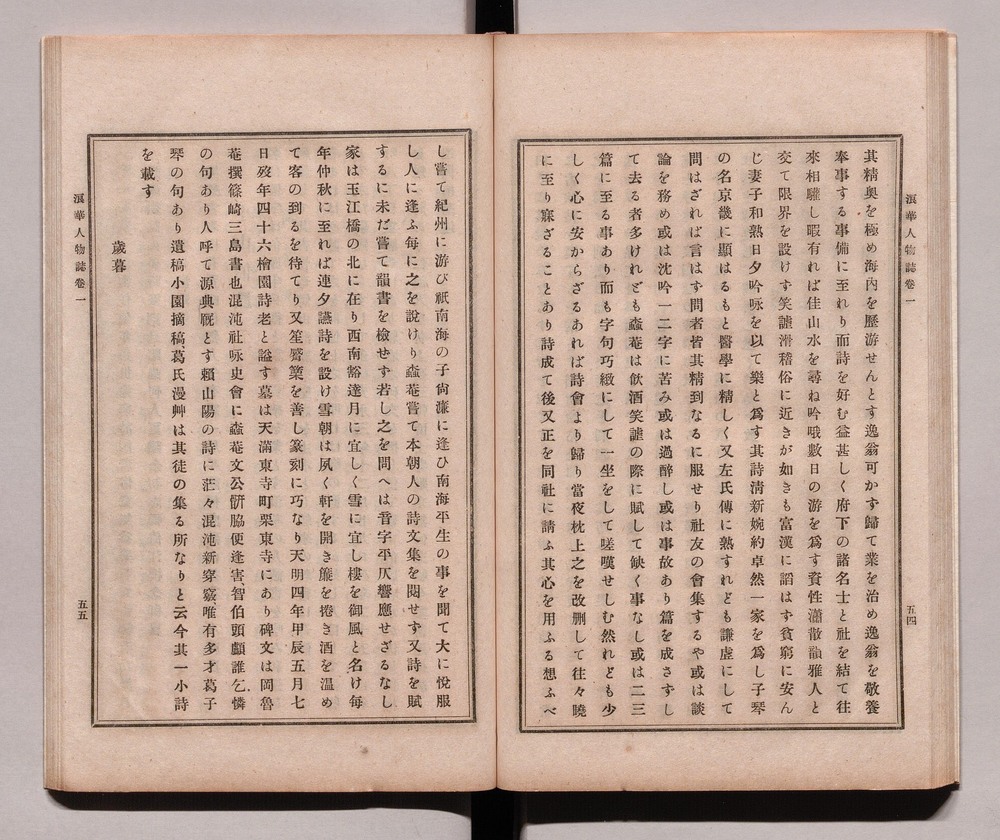 浪華人物誌卷一
五四
其精奥を極め海内を歷游せんとす逸翁可かす歸て業を治め逸翁を敬養
奉事する事備に至れり而詩を好む益甚しく府下の諸名士と社を結て往
來相驩し暇有れば佳山水を尋ね吟哦數日の游を爲す資性瀟散韻雅人と
交て限界を設けす笑謔滑稽俗に近きが如きも富漢に諂はす貧窮に安ん
じ妻子和熟日夕吟咏を以て樂と爲す其詩淸新婉約卓然一家を爲し子琴
の名京畿に顯はるもと醫學に精しく又左氏傳に熟すれども謙虛にして
問はざれば言はす問者皆其精到なるに服せり社友の會集するや或は談
論を務め或は沈吟一二字に苦み或は過醉し或は事故あり篇を成さすし
て去る者多けれども螙菴は飮酒笑謔の際に賦して缺く事なし或は二三
篇に至る事あり而も字句巧緻にして一坐をして嗟嘆せしむ然れども少
しく心に安からざるあれば詩會より歸り當夜枕上之を改刪して往々曉
に至り寐ざることあり詩成て後又正を同社に請ふ其心を用ふる想ふべ
し嘗て紀州に游び祇南海の子尙濂に逢ひ南海平生の事を聞て大に悅服
し人に逢ふ每に之を說けり螙菴嘗て本朝人の詩文集を閱せす又詩を賦
するに未だ嘗て韻書を檢せす若し之を問へは音字平仄響應せざるなし
家は玉江橋の北に在り西南豁達月に宜しく雪に宜し樓を御風と名け每
年仲秋に至れば連夕讌詩を設け雪朝は夙く軒を開き簾を捲き酒を溫め
て客の到るを待てり又笙觱篥を善し篆刻に巧なり天明四年甲辰五月七
日歿年四十六檜園詩老と謚す墓は天滿東寺町栗東寺にあり碑文は岡魯
菴撰篠崎三島書也混沌社咏史會に螙菴文公骿脇便逢害、智伯頭顱誰乞憐
の句あり人呼て源典厩とす賴山陽の詩に茫々混沌新穿竅、唯有多才葛子
琴の句あり遺稿小園摘稿、葛氏漫艸は其徒の集る所なりと云今其一小詩
を載す
歲暮
浪華人物誌卷一
五五